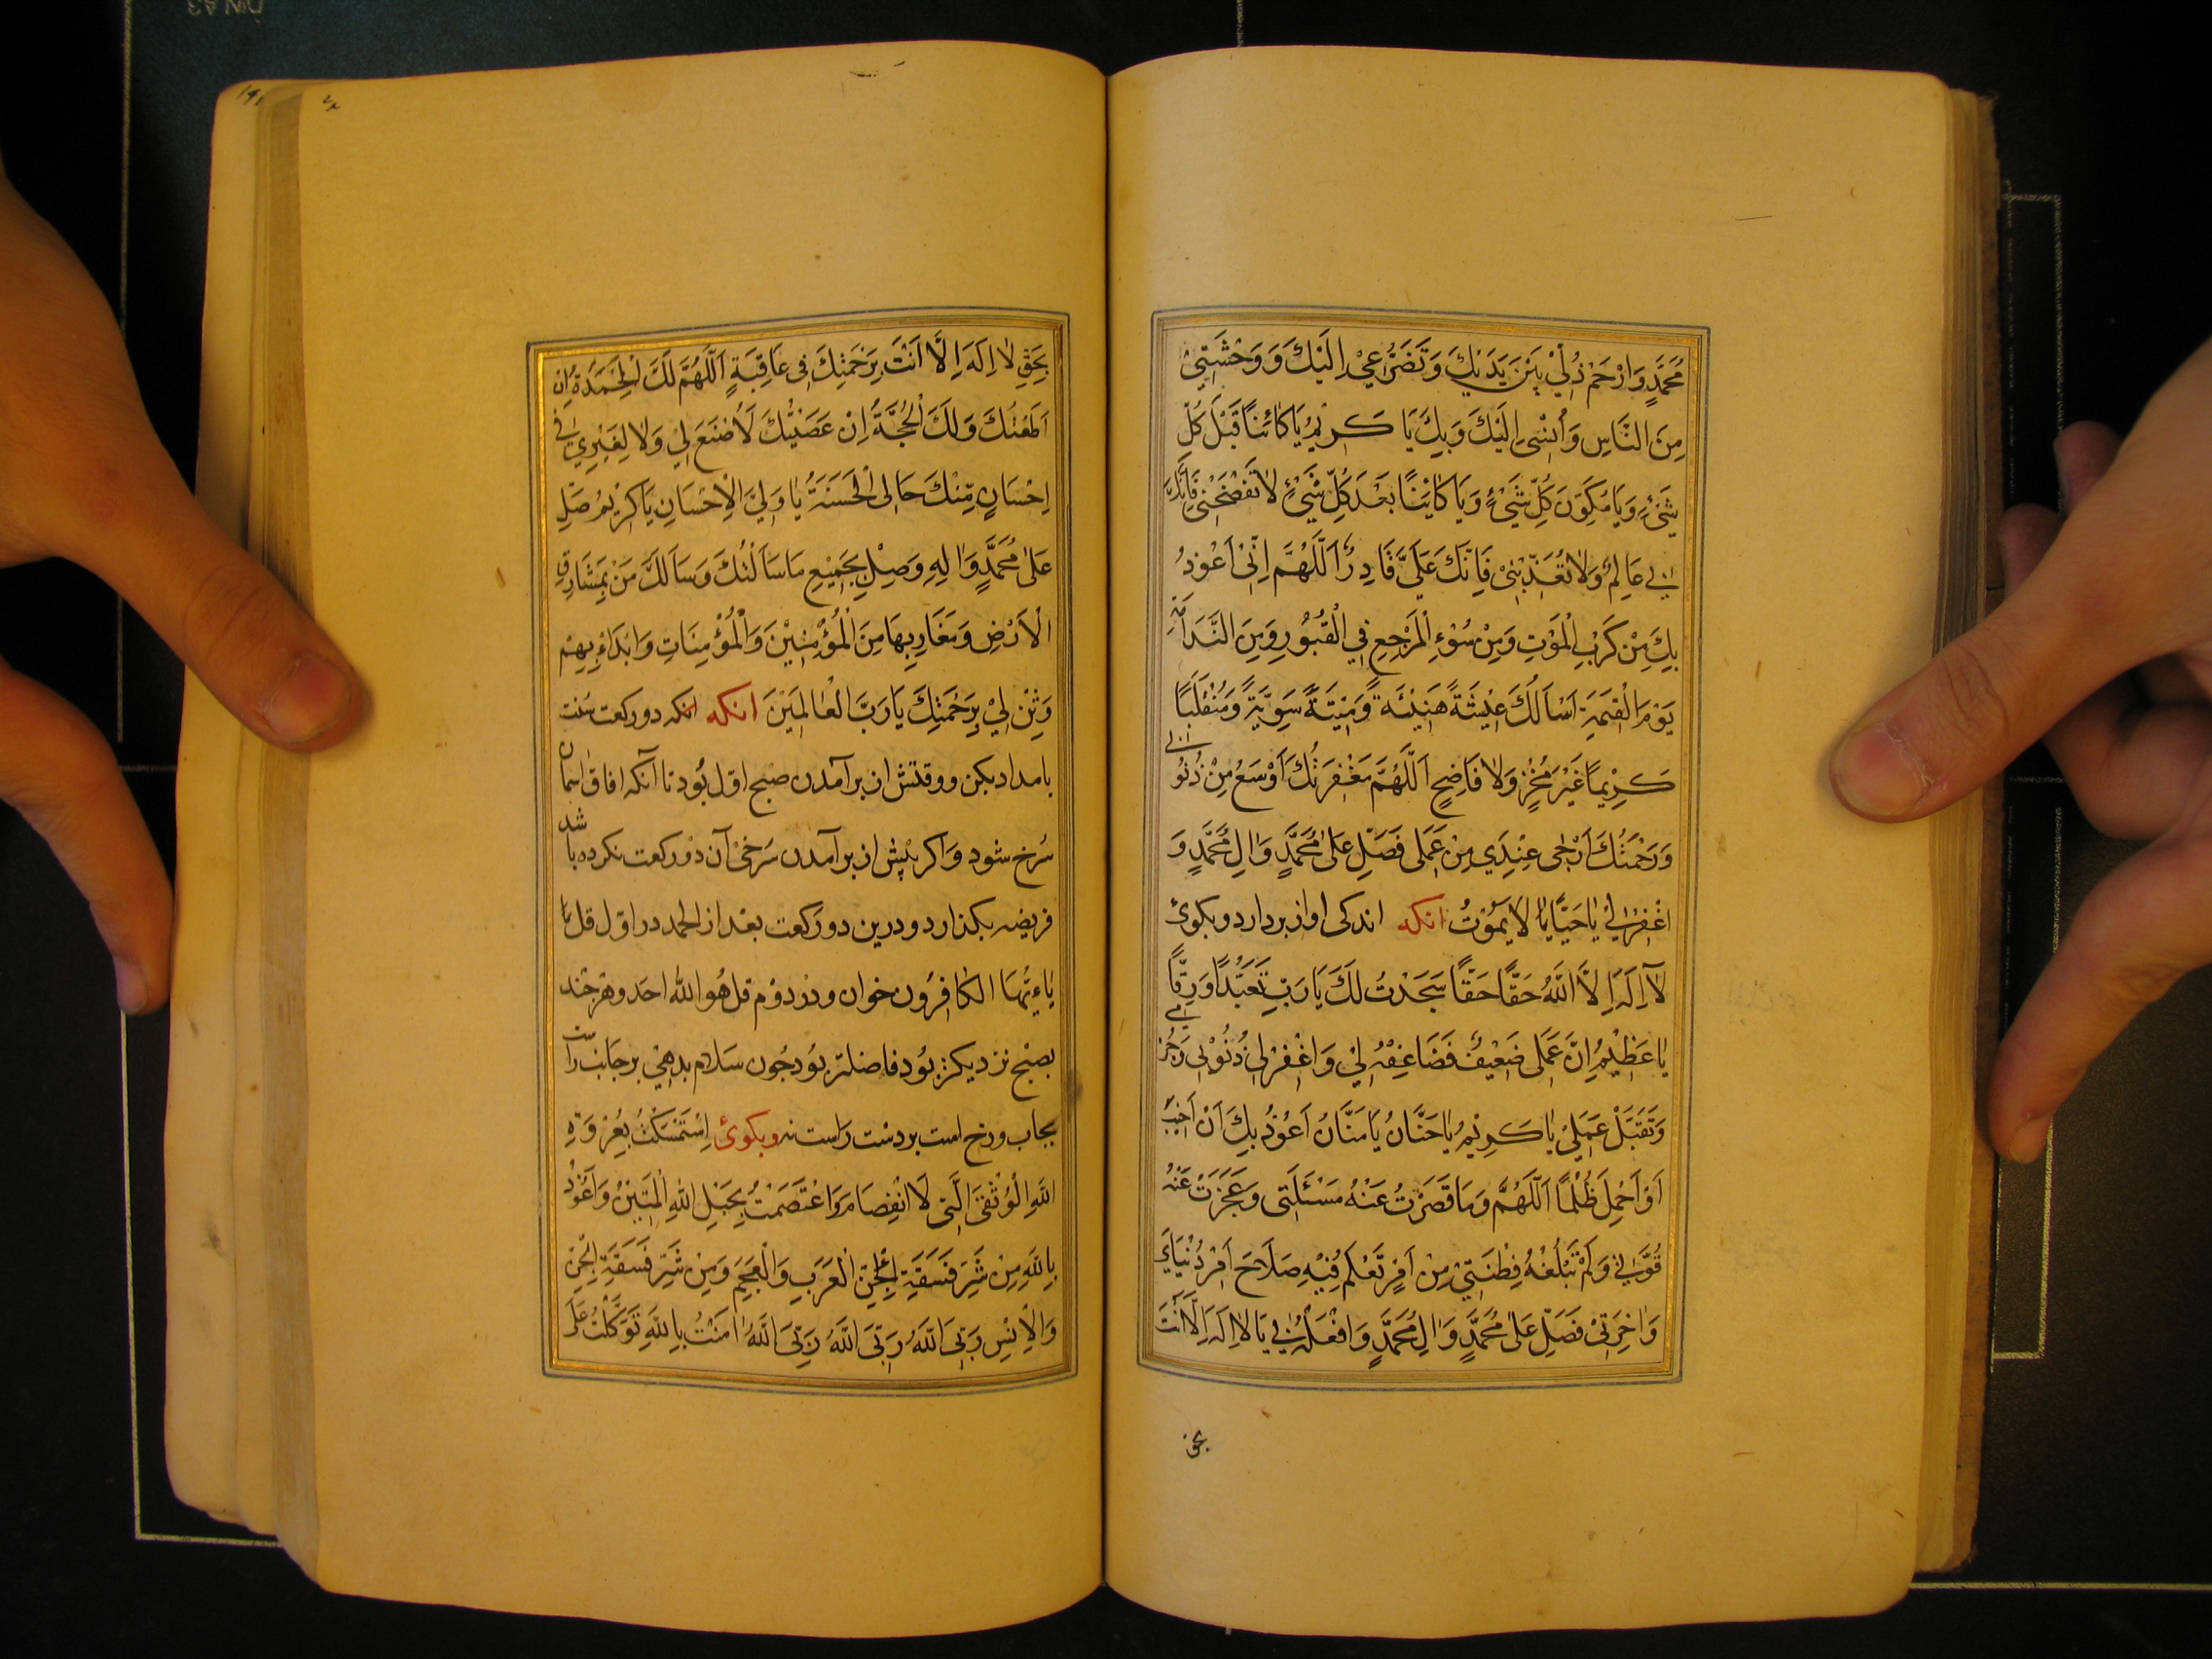 مُحَمَّدٍ وَارْحَمْ ذُلّيْ بَيْنَ يَدَيْكَ وَتَضَرُّعِيْ اِلَيْكَ وَوَحْشَتِيْ
مِنَ النَّاسِ وَأُنْسِىْ اِلَيْكَ وَبِكَ يَا كَرِيْمُ يَا كَائِنًا قَبْلَ كُلِّ
شَيْءٍ وَيَا مُكَوِّنَ كُلِّ شَيْءٍ وَيَا كَايِنًا بَعْدَ كُلِّ شَيْءٍ لَا تَفْضَحْنِىْ فَاِنَّكَ
بي عَالِمٌ وَلَا تُعَذِّبْنِىْ فَاِنَّكَ عَلَيَّ قَادِرٌ اَللّٰهُمَّ اِنّىْ اَعُوْذُ
بِكَ مِنْ كَرْبِ الْمَوْتِ وَمِنْ سُوْءِ الْمَرْجِعِ فِي الْقُبُوْرِ وَمِنَ النَّدَامَةِ
يَوْمَ الْقِيٰمَةِ اَسْاَلُكَ عِيْشَةً هَنِيْئَةً وَمِيْتَةً سَوِيَّةً وَمُنْقَلَبًا
كَرِيْمًا غَيْرَ مُخْزٍ وَلَا فَاضِحٍ اَللّٰهُمَّ مَغْفِرَتُكَ اَوْسَعُ مِنْ ذُنُوْبي
وَرَحْمَتُكَ اَرْجٰى عِنْدِي مِنْ عَمَلى فَصَلِّ عَلٰى مُحَمَّدٍ وَاٰلِ مُحَمَّدٍ وَ
اغْفِرْلِيْ يَا حَيًّا يَا لَا يَمُوْتُ انكه اندكى اواز بردارد وبكوئ
لَآ اِلٰهَ اِلَّا اللّٰهُ حَقًّا حَقًّا سَجَدْتُ لَكَ يَا رَبِّ تَعَبُّدًا وَرِقًّا
يَا عَظِيْمُ اِنَّ عَمَلى ضَعِيْفٌ فَضَاعِفْهُ لِيْ وَاغْفِرْلى ذُنُوْبى وَجُرْمي
وَتَقَبَّلْ عَمَلِيْ يَا كَرِيْمُ يَا حَنَّانُ يَا مَنَّانُ اَعُوْذُ بِكَ اَنْ اَخِيْبَ
اَوْ اَحْمِلَ ظُلْمًا اَللّٰهُمَّ وَمَا قَصَرَتْ عَنْهُ مَسْئَلَتى وَعَجَزَتْ عَنْهُ
قُوَّتي وَلَمْ تَبْلُغْهُ فِطْنَتِيْ مِنْ اَمْرٍ تَعْلَمُ فِيْهِ صَلَاحَ اَمْرِ دُنْيَايَ
وَاٰخِرَتىْ فَصَلِّ عَلٰى مُحَمَّدٍ وَاٰلِ مُحَمَّدٍ وَافْعَلْهُ بي يَا لَا اِلٰهَ اِلَّا اَنْتَ
بحق
بِحَقِّ لَا اِلٰهَ اِلَّا اَنْتَ بِرَحْمَتِكَ فِى عَاقِبَةٍ اَللّٰهُمَّ لَكَ الْحَمْدُ اِنْ
اَطَعْتُكَ وَلَكَ الْحُجَّةُ اِنْ عَصَيْتُكَ لَا صُنْعَ لِيْ وَلَا لِغَيْرِي فى
اِحْسَانٍ مِنْكَ حَالِى الْحَسَنَةُ يَا وَلِيَّ الْاِحْسَانِ يَا كَرِيْمُ صَلِّ
عَلٰى مُحَمَّدٍ وَاٰلِهِ وَصِلْ بِجَمِيْعِ مَا سَاَلْتُكَ وَسَاَلَكَ مَنْ بِمَشَارِقِ
الْاَرْضِ وَمَغَارِبِهَا مِنَ الْمُؤْمِنِيْنَ وَالْمُؤْمِنَاتِ وَابْدَاءْ بِهِمْ
وَثَنِّ لِيْ بِرَحْمَتِكَ يَا رَبَّ الْعَالَمِيْنَ انكه انكه دو ركعت سنت
بامداد بكن ووقتش از برآمدن صبح اول بُود تا آنكه افاق اسمان
سُرخ شود وَاكر پيش از برآمدن سرخى آن دو ركعت نكرده باشد
فريضه بكذارد ودرين دو ركعت بعد از الحمد در اول قل يا
يَاءَيُّهَا الكَافِرُون خوان ودر دوّم قل هُو اللّٰه احَد وهرچند
بصبح نزديكتر بُود فاضلتر بُود چُون سَلام بدهى بر جانب راست
بخاب ورخ است بردست راست نه وبكوئ اِسْتَمْسَكْتُ بِعُرْوَةِ
اللّٰهِ الْوُثْقىٰ الَّتِى لَا انْفِصَامَ وَاعْتَصَمْتُ بِحَبْلِ اللّٰهِ الْمَتِيْنِ وَاَعُوْذُ
بِاللّٰهِ مِنْ شَرِّ فَسَقَةِ الْجِنِّ الْعَرَبِ وَالْعَجَمِ وَمِنْ شَرِّ فَسَقَةِ الْجِنِّ
وَالْاِنْسِ رَبِّىَ اللّٰهُ رَبِّىَ اللّٰهُ رَبِّىَ اللّٰهُ اٰمَنْتُ بِاللّٰهِ تَوَكَّلْتُ عَلَى